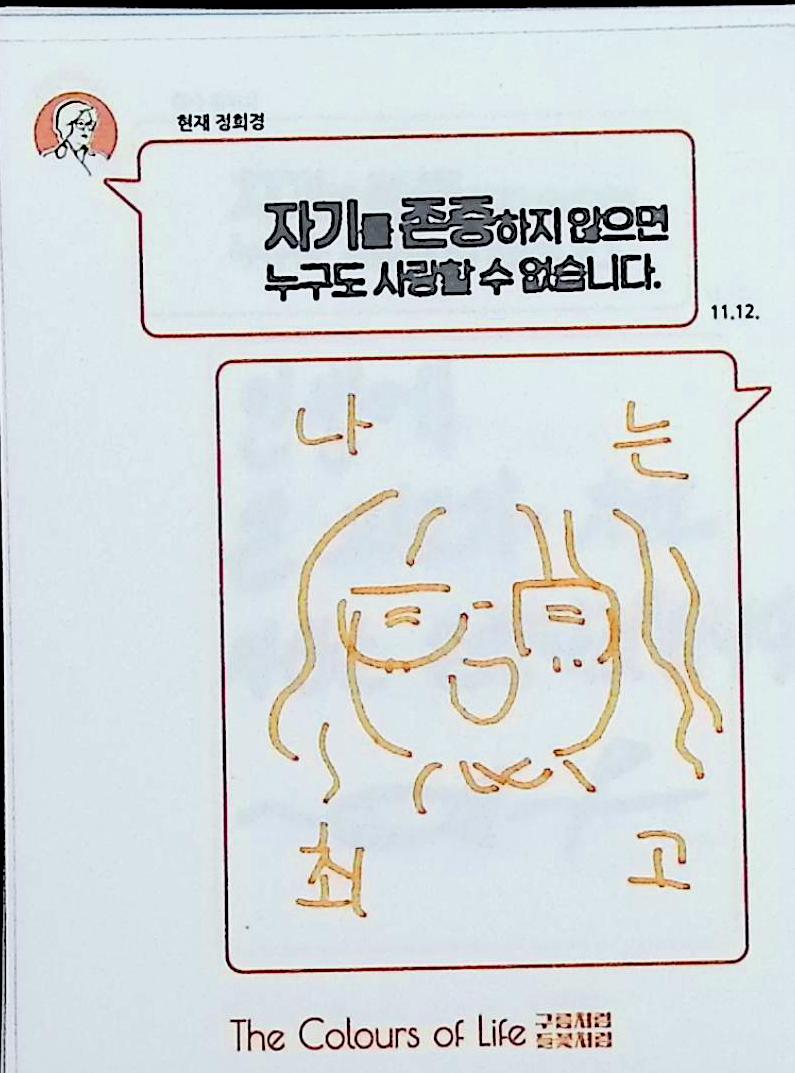 현재 정희경
자기를 존중하지 않으면
누구도 사랑할 수 없습니다.
11.12.
나 는
최 고
The Colours of Life 구름처럼
들꽃처럼